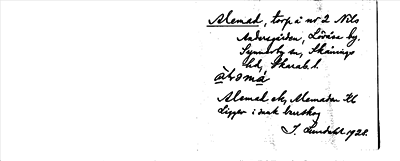 Alemad, torp å nr 2 Nils
Andersgården, Lövåsa by.
Synnerby sn, Skånings
hd, Skarab. l.
àʹtomà
Alemad ek, Alemaden
Ligger i svak barrskog
I. Lundahl 1928.